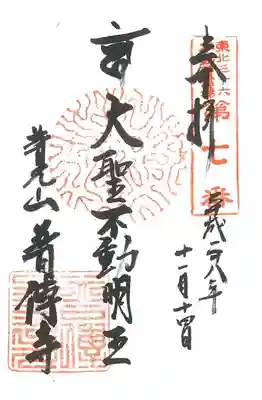 東北三十六
第七番
奉拝
平成二八年
十一月十四日
大聖不動明王
普光山
普傳寺